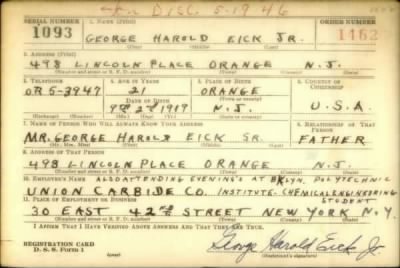 DISC. 5-19-46
SERIAL NUMBER 1. NAME (Print) ORDER NUMBER
1093 GEORGE HAROLD EICK JR. 1162
(First) (Middle) (Last)
2. ADDRESS (Print)
498 LINCOLN PLACE ORANGE N.J.
(Number and street or R. F. D. number) (Town) (County) (State)
3. TELEPHONE 4. AGE IN YEARS 5. PLACE OF BIRTH 6. COUNTRY OF CITIZENSHIP
OR 5-3947 21 ORANGE
DATE OF BIRTH (Town or county)
N.J. U.S.A.
(Exchange) (Number) (Mo.) (Day) (Yr.) (State or country)
7. NAME OF PERSON WHO WILL ALWAYS KNOW YOUR ADDRESS 8. RELATIONSHIP OF THAT PERSON
MR. GEORGE HAROLD EICK SR. FATHER
(Mr., Mrs., Miss) (First) (Middle) (Last)
9. ADDRESS OF THAT PERSON
498 LINCOLN PLACE ORANGE N.J.
(Number and street or R. F. D. number) (Town) (County) (State)
10. EMPLOYER'S NAME ALSO ATTENDING EVENING'S AT BKLYN. POLYTECHNIC
UNION CARBIDE CO. INSTITUTE. CHEMICAL ENGINEERING
11. PLACE OF EMPLOYMENT OR BUSINESS STUDENT
30 EAST 42ND STREET NEW YORK N.Y.
(Number and street or R. F. D. number) (Town) (County) (State)
I AFFIRM THAT I HAVE VERIFIED ABOVE ANSWERS AND THAT THEY ARE TRUE.
REGISTRATION CARD
D. S. S. Form 1 George Harold Eick Jr.
(Registrant's signature)